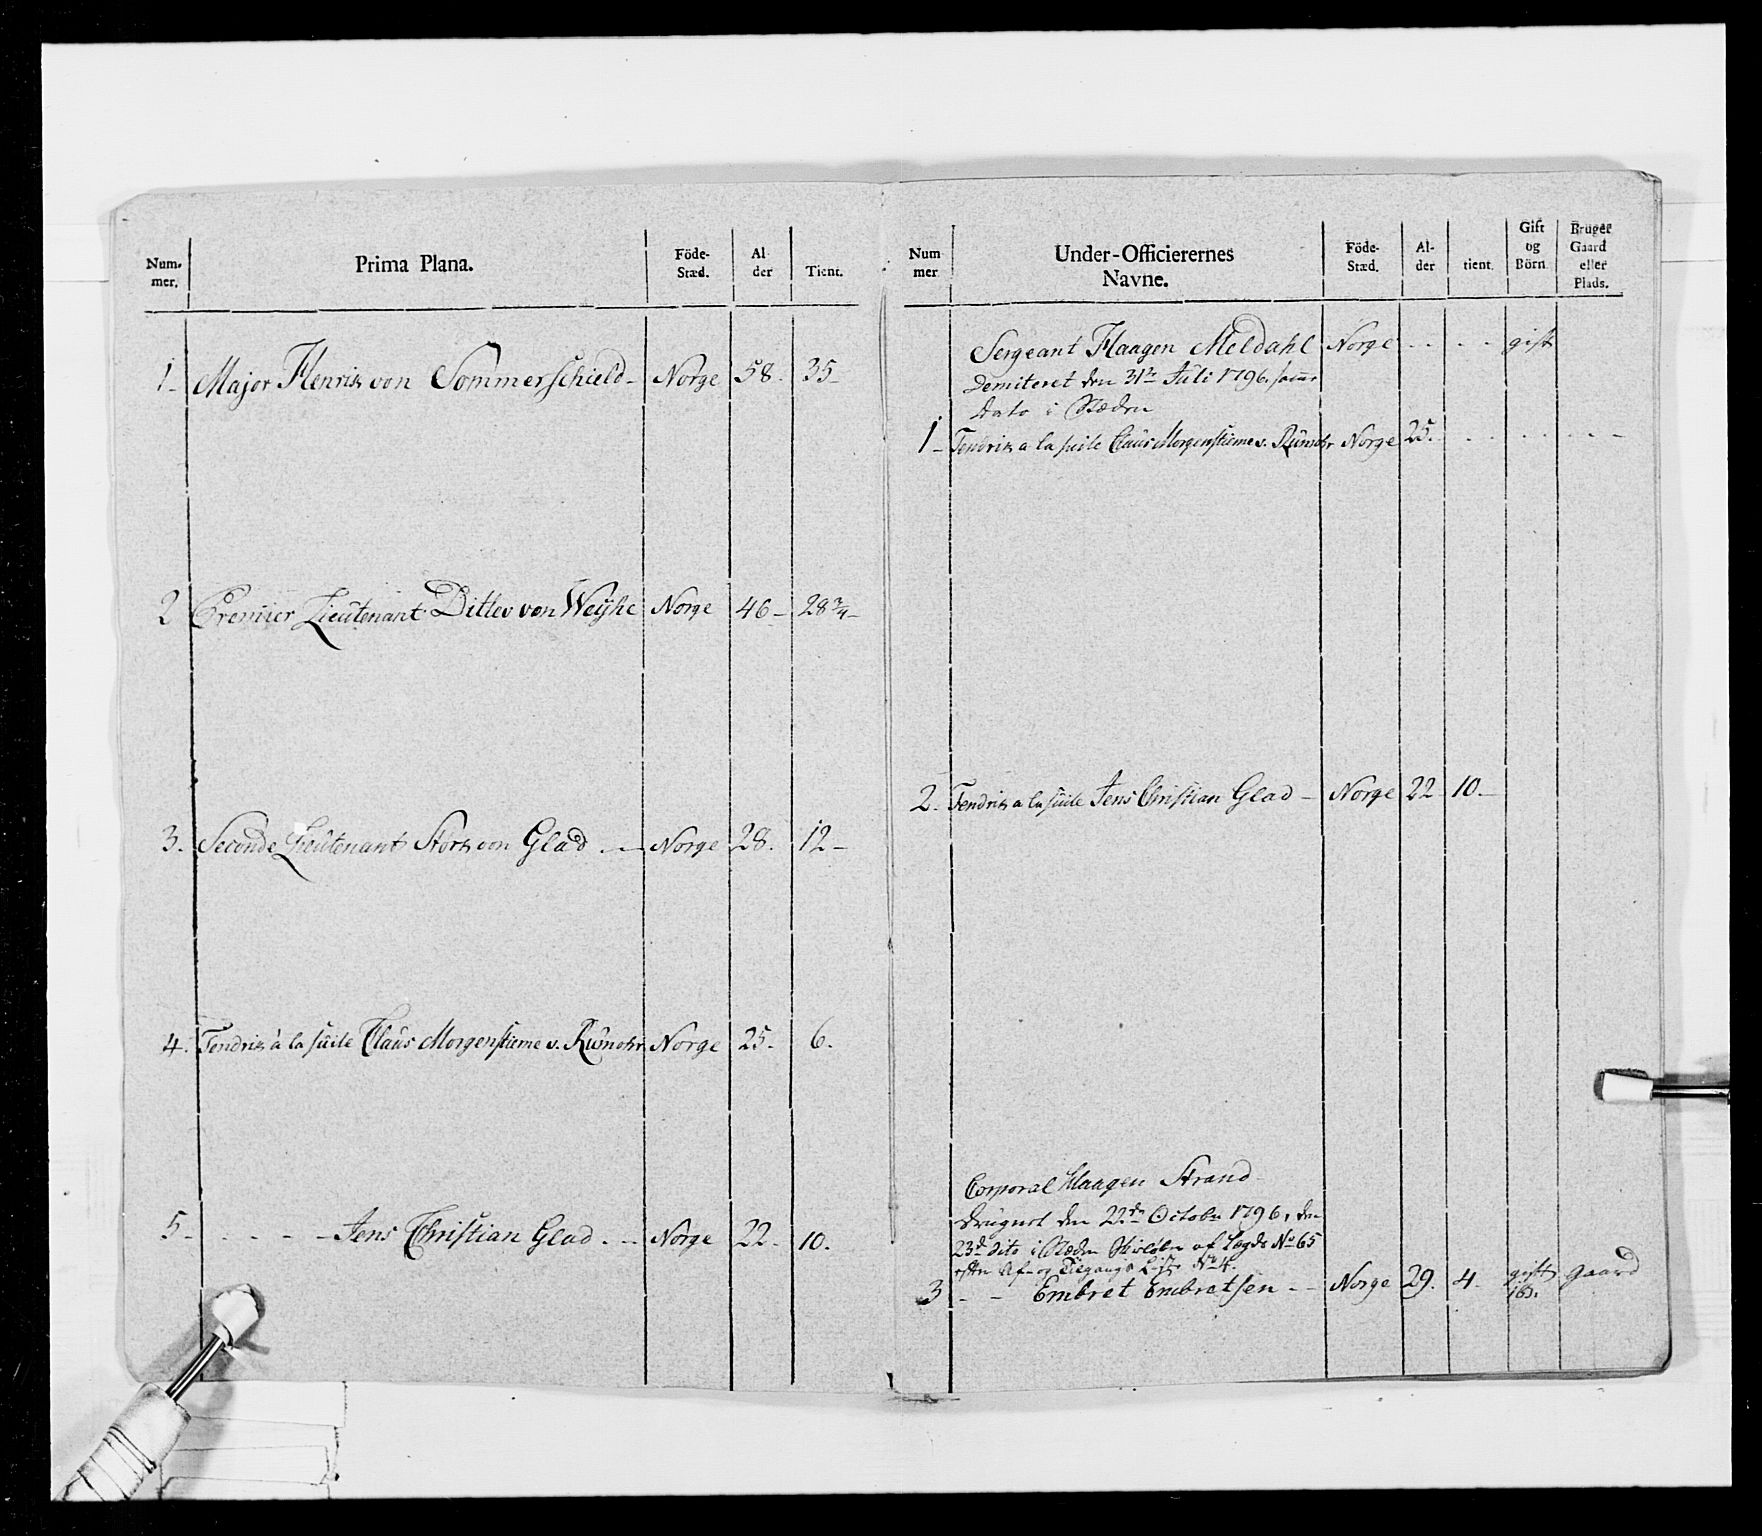 Num-
mer.
Prima Plana.
Föde-
Stæd.
Al
der
Tient.
1- Major Henrik von Sommerschield- Norge 58. 35-
2 Premier Lieutenant Ditlev von Weyhe Norge 46- 28 3/4-
3. Seconde Lieutenant Störk von Glad Norge 28. 12-
4. Fendrik à la suite Claus Morgenstierne v. Rumohr Norge 25. 6.
5- - - - - Jens Christian Glad. - - Norge 22- 10.
Num
mer
Under-Officierernes
Navne.
Föde-
Stæd.
Al-
der
tient.
Gift
og
Börn
Bruger
Gaard
eller
Plads.
Sergeant Haagen Meldahl Norge - - - - gift
Demiteret den 31te Juli 1796.
Dato i Stæden
1- Fendrik a la suite Claus Morgenstierne v. Rumohr Norge 25. - - - - - - -
2. Fendrik a la suite Jens Christian Glad - Norge 22 10.-
Corporal Haagen Strand
den 22de October 1796, den
23de dito i Stæden af Lægds No 65
efter Af- og Tilgangs Liste No 4.
3 - - Embret Embretsen - - Norge 29. 4. gift Gaard
1 B.